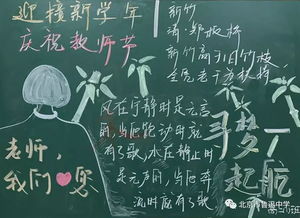 迎接新学年
庆祝教师节
新竹
清·郑板桥
新竹高于旧竹枝
全凭老干为扶持
风在宁静时是无言
的,当它跑动时就
有了歌,水在静止时
是无声的,当它奔
流时就有了歌
寻梦
起航
老师,
我们您
北京市鲁迅中学